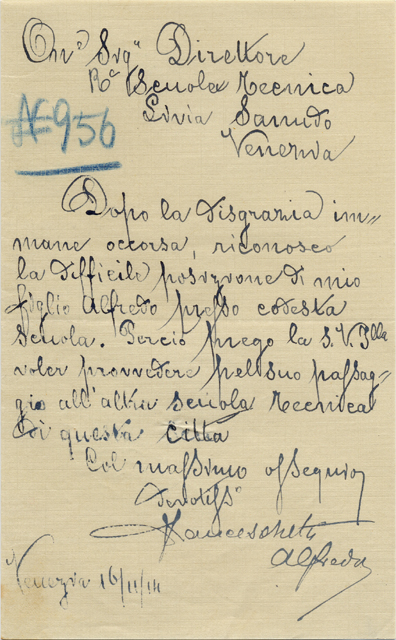 On.º Sig.r Direttore
Rª Scuola Tecnica
Livia Sanudo
Venezia
N 956
Dopo la disgrazia im=
mane occorsa, riconosco
la difficile posizione di mio
figlio Alfredo presso codesta
Scuola. Perciò prego la S.V. Illª
voler provvedere pel suo passag=
gio all'altra Scuola Tecnica
di questa città
Col massimo ossequio
Devotiss°
Franceschetti
Alfredo
Venezia 16/11/14